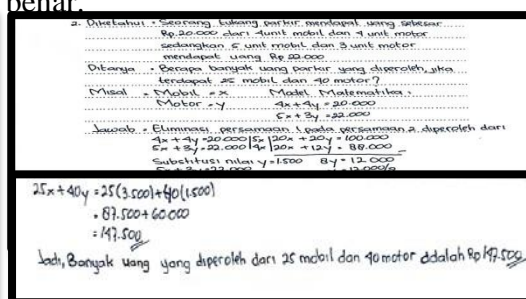 benar.
2. Diketahui = Seorang tukang parkir mendapat uang sebesar
Rp.20.000 dari 4unit mobil dan 4 unit motor
sedangkan 5 unit mobil dan 3 unit motor
mendapat uang Rp 22.000
Ditanya = Berapa banyak uang parkir yang diperoleh, jika
terdapat 25 mobil dan 40 motor?
Misal = Mobil = x Model Matematika :
Motor = y 4x + 4y = 20.000
5x + 3y = 22.000
Jawab = Eliminasi persamaan 1 pada persamaan 2 diperoleh dari
4x + 4y = 20.000 |5x| 20x + 20y = 100.000
5x + 3y = 22.000 |4x| 20x + 12y = 88.000
Substitusi nilai y = 1.500 8y = 12.000
25x + 40y = 25(3.500) + 40(1.500)
= 87.500 + 60.000
= 147.500
Jadi, Banyak uang yang diperoleh dari 25 mobil dan 40 motor adalah Rp 147.500